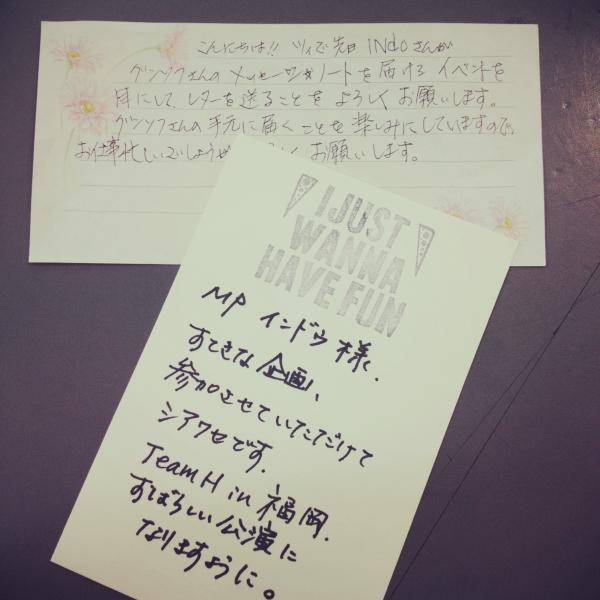 こんにちは!! ツイで先日 INdoさんが
グンソクさんの メッセージノートを届ける イベントを
目にして、レターを送ることを よろしく お願いします。
グンソクさんの 手元に届くことを 楽しみにしていますので、
お仕事忙しいでしょうが お願いします。
I JUST
WANNA
HAVE FUN
MP インドウ 様、
すてきな 企画、
参加させていただけて
シアワセです。
Team H in 福岡、
すばらしい 公演に
なりますように。